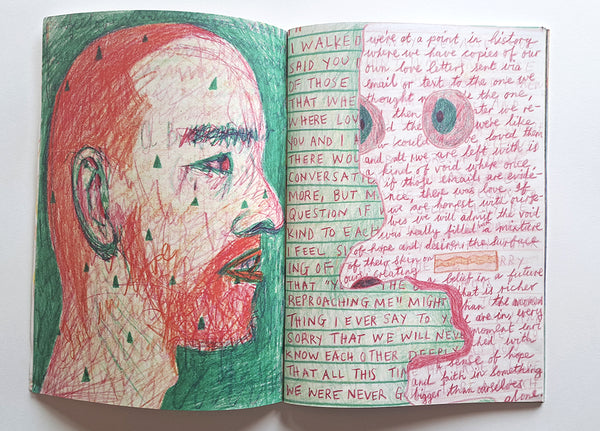 I WALKED
SAID YOU
OF THOSE
THAT WHE
WHERE LOV
YOU AND I
THERE WOU
CONVERSATI
MORE, BUT M
QUESTION IF
KIND TO EACH
I FEEL S
ING OF
THAT "Y THE
REPROACHING ME" MIGHT
THING I EVER SAY TO Y
SORRY THAT WE WILL NEV
KNOW EACH OTHER DEEPLY
THAT ALL THIS TIM
WE WERE NEVER G
we're at a point in history
where we have copies of our
own love letters sent via
email or text to the one we
thought the one,
then we re-
d the were like
coul loved them
and all we are left with is
a kind of void where once
if those emails are evide-
nce, there was love. If
we are honest with ourse-
lves we will admit the void
was really filled a mixture
of hope and desire the surface
of their skin on RRY
our creating belief in a future
that is richer
than the
d are in, every
moment
hed with
a sense of hope
and faith in something
bigger than ourselves
alone.